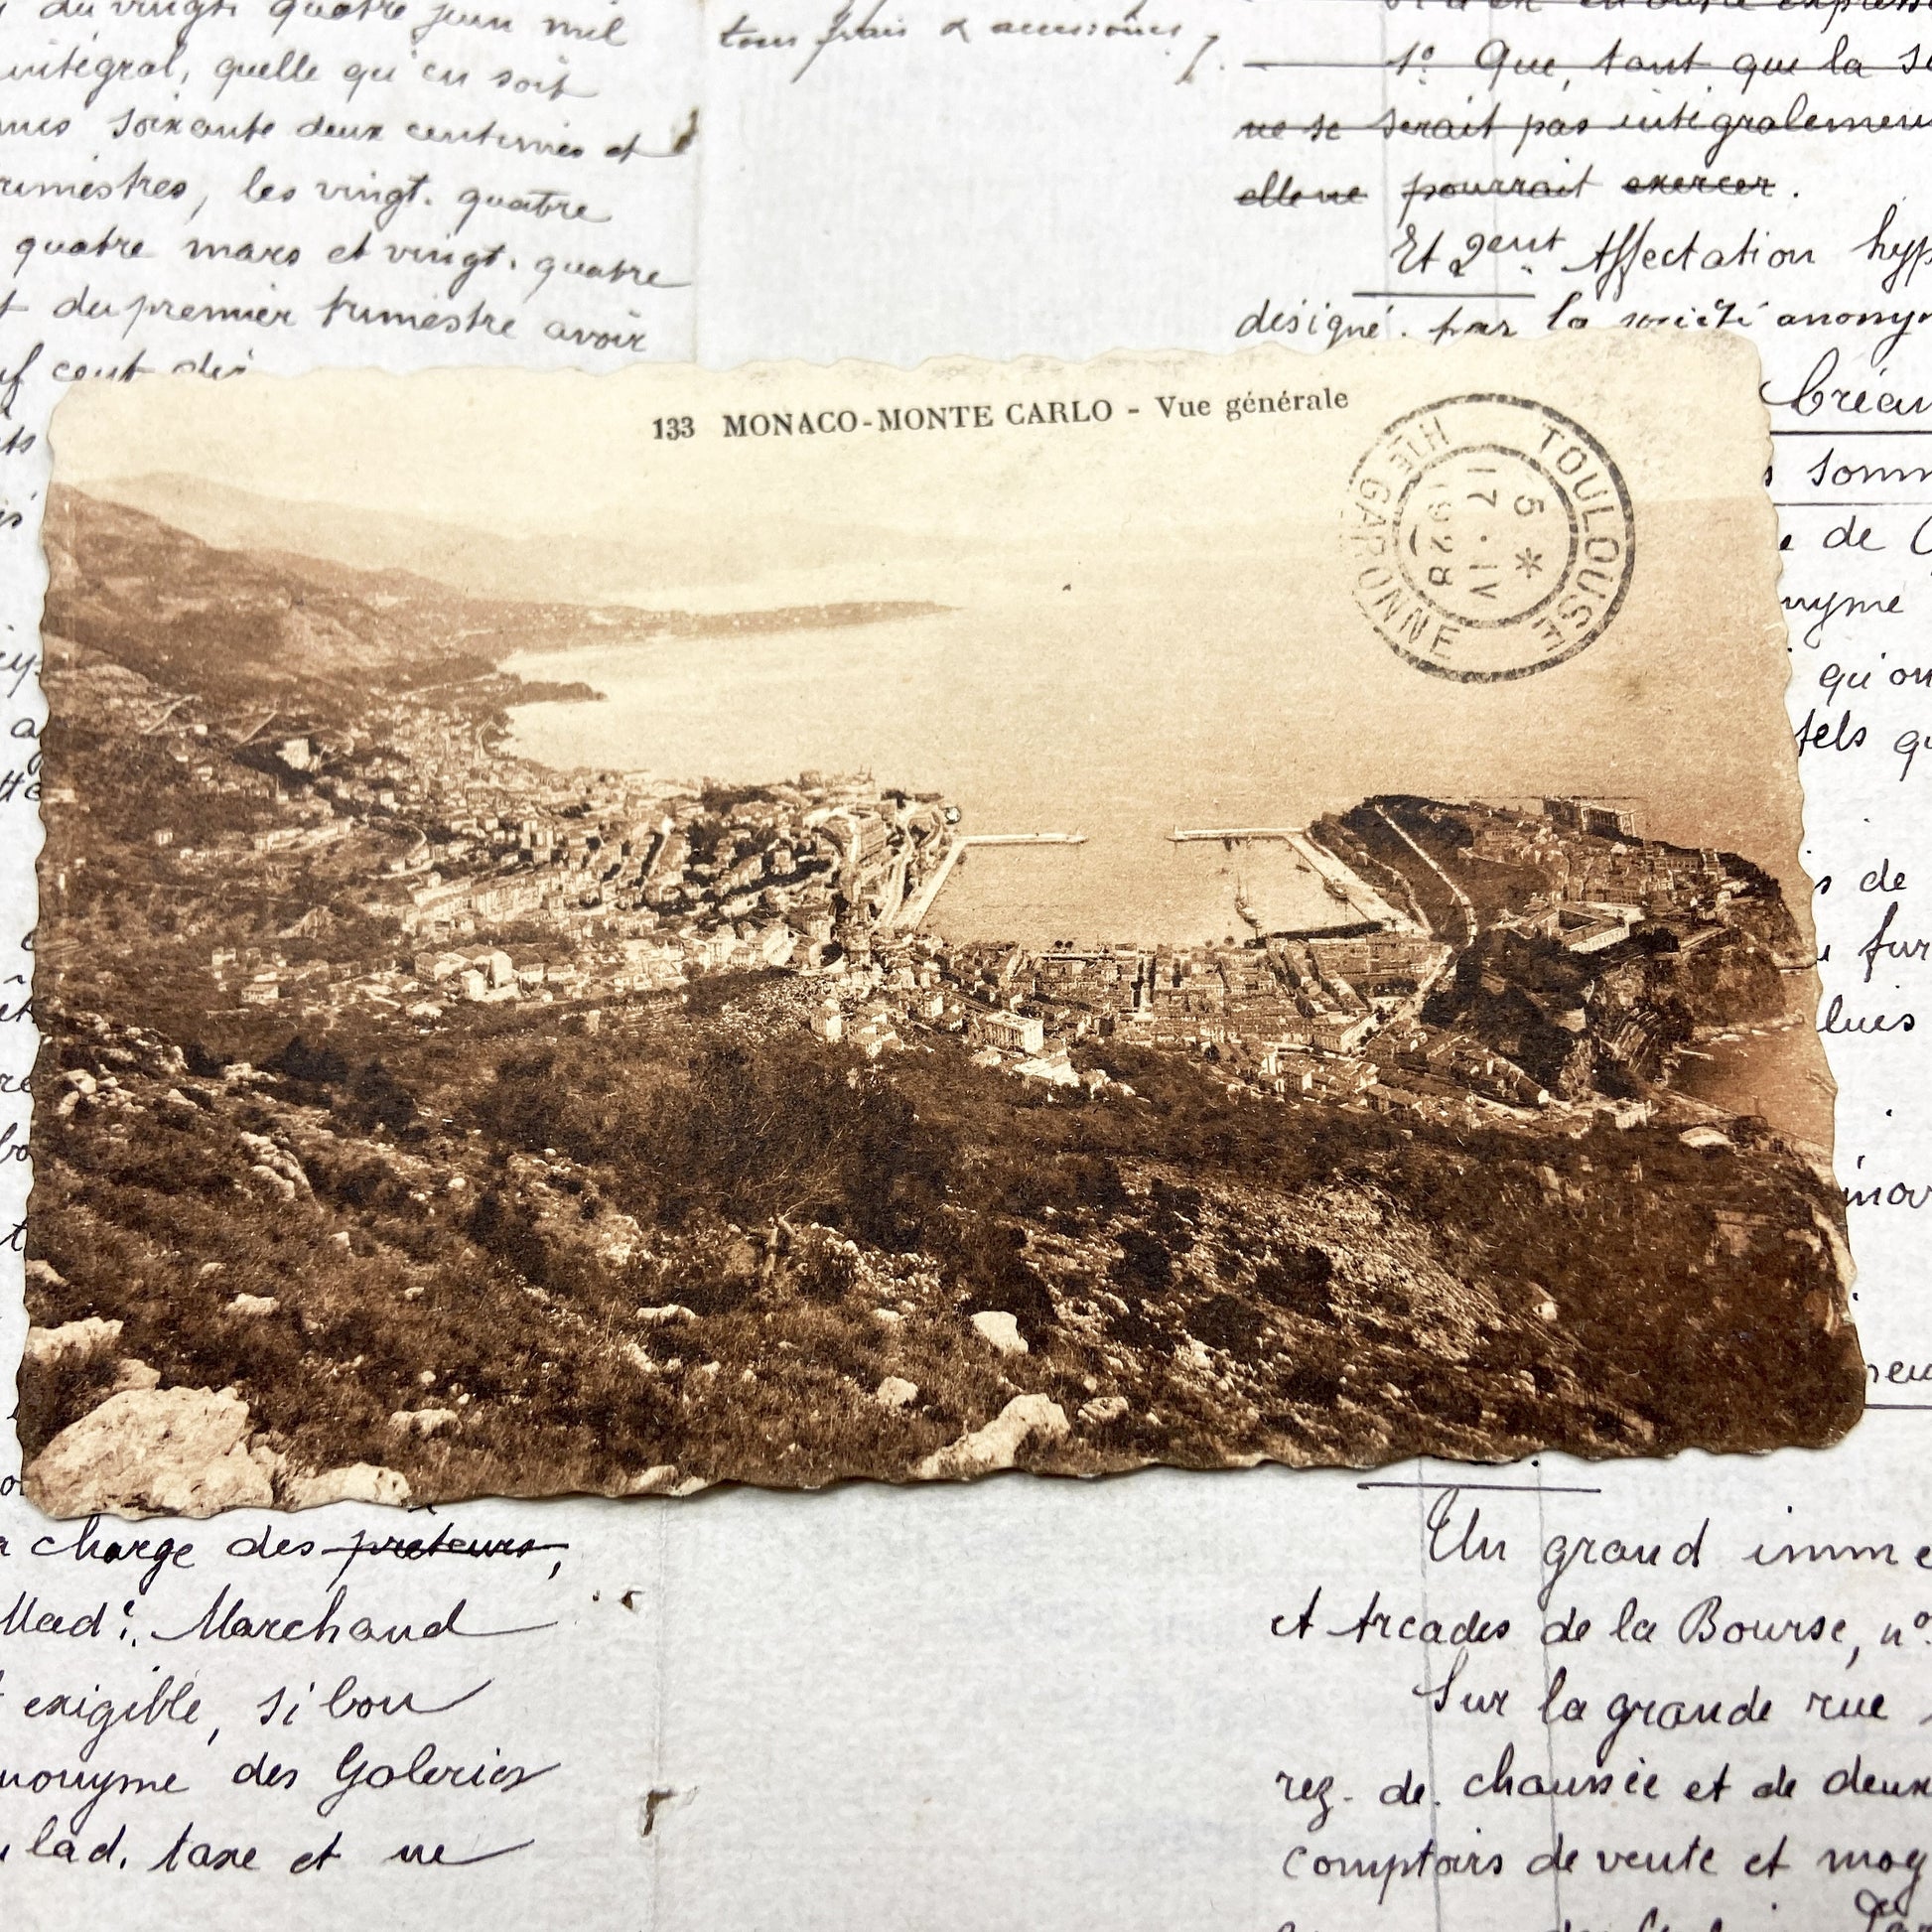 du vingt quatre juin mil
intégral, quelle qu'en soit
soixante deux centimes et
trimestres, les vingt. quatre
quatre mars et vingt. quatre
du premier trimestre avoir
cent dix
tous frais & accessoires
1º Que, tant que la
ne se serait pas intégralement
elle ne pourrait exercer.
Et 2ent Affectation hyp
désigné. par la société anonym
133 MONACO-MONTE CARLO - Vue générale
TOULOUSE
HTE GARONNE
5 *
17 . IV
1928
somm
de
nyme
qu'on
tels qu
de
fur
lues
charge des prêteurs,
Mad. Marchand
exigible, si bon
anonyme des Galeries
lad. taxe et ne
Un grand imme
et Arcades de la Bourse, nº
Sur la grande rue
rez. de. chaussée et de deux
comptoirs de vente et mag